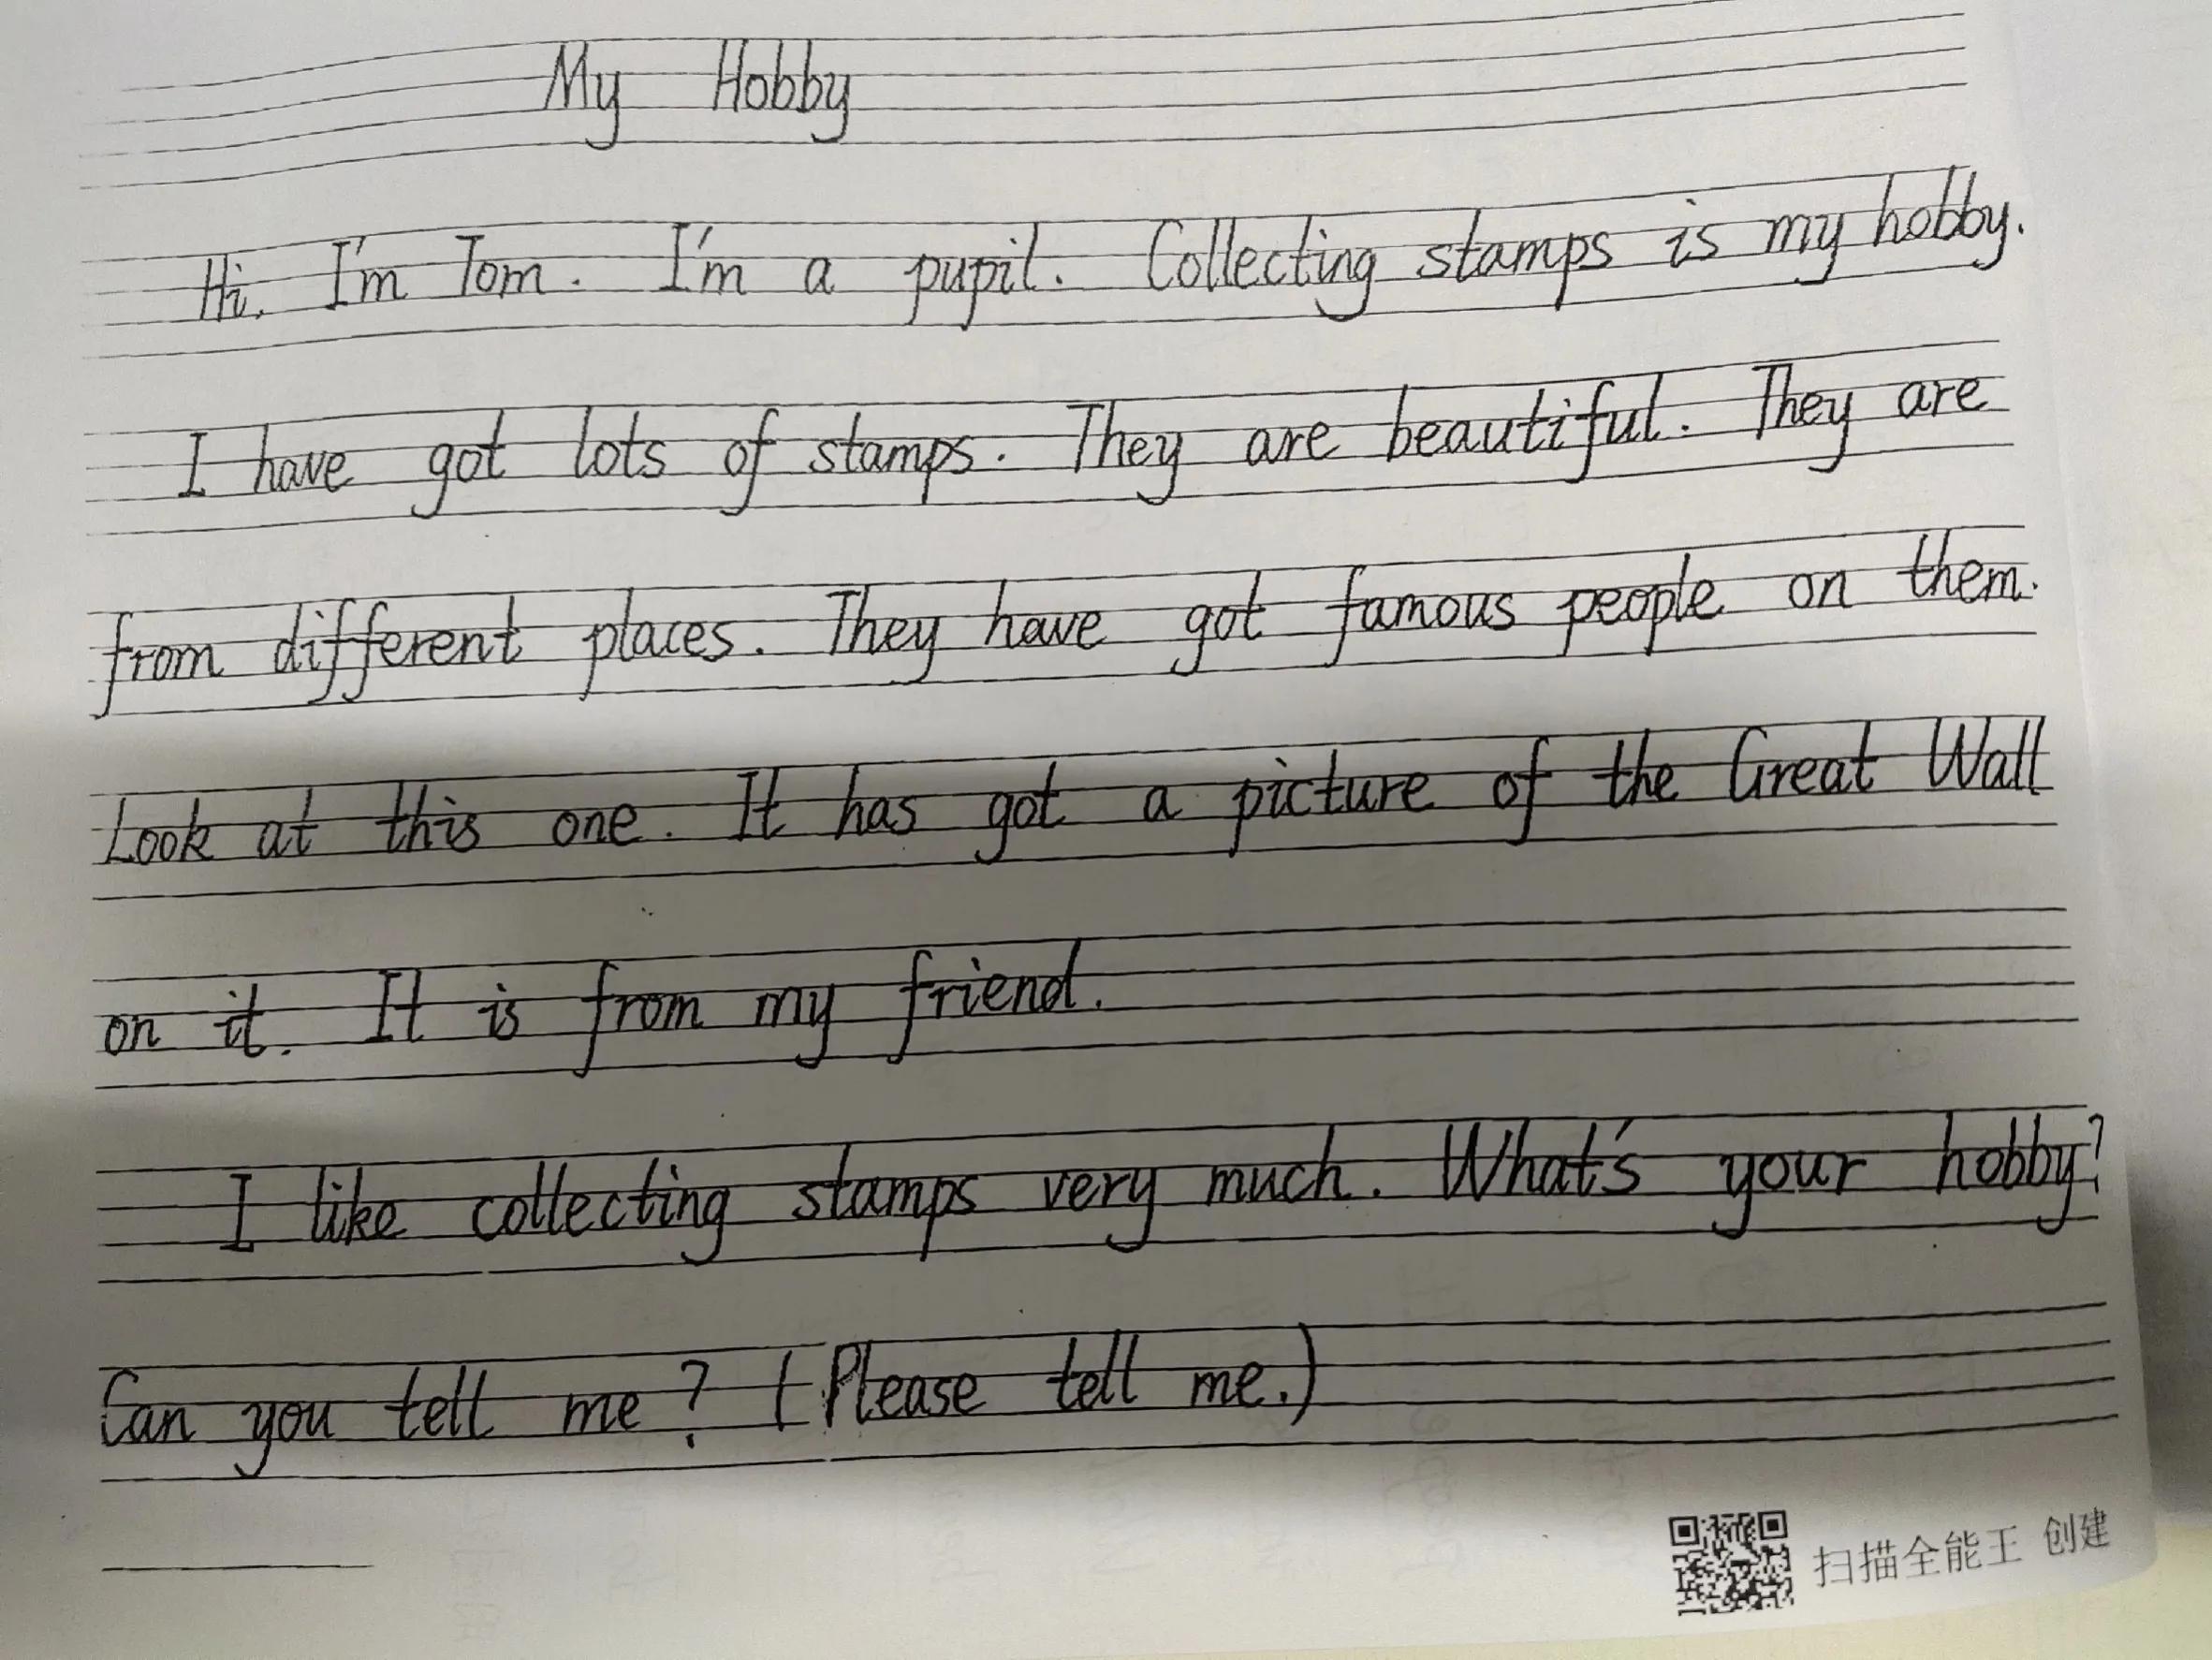 My Hobby
Hi, I'm Tom. I'm a pupil. Collecting stamps is my hobby.
I have got lots of stamps. They are beautiful. They are
from different places. They have got famous people on them.
Look at this one. It has got a picture of the Great Wall
on it. It is from my friend.
I like collecting stamps very much. What's your hobby?
Can you tell me? (Please tell me.)
扫描全能王 创建